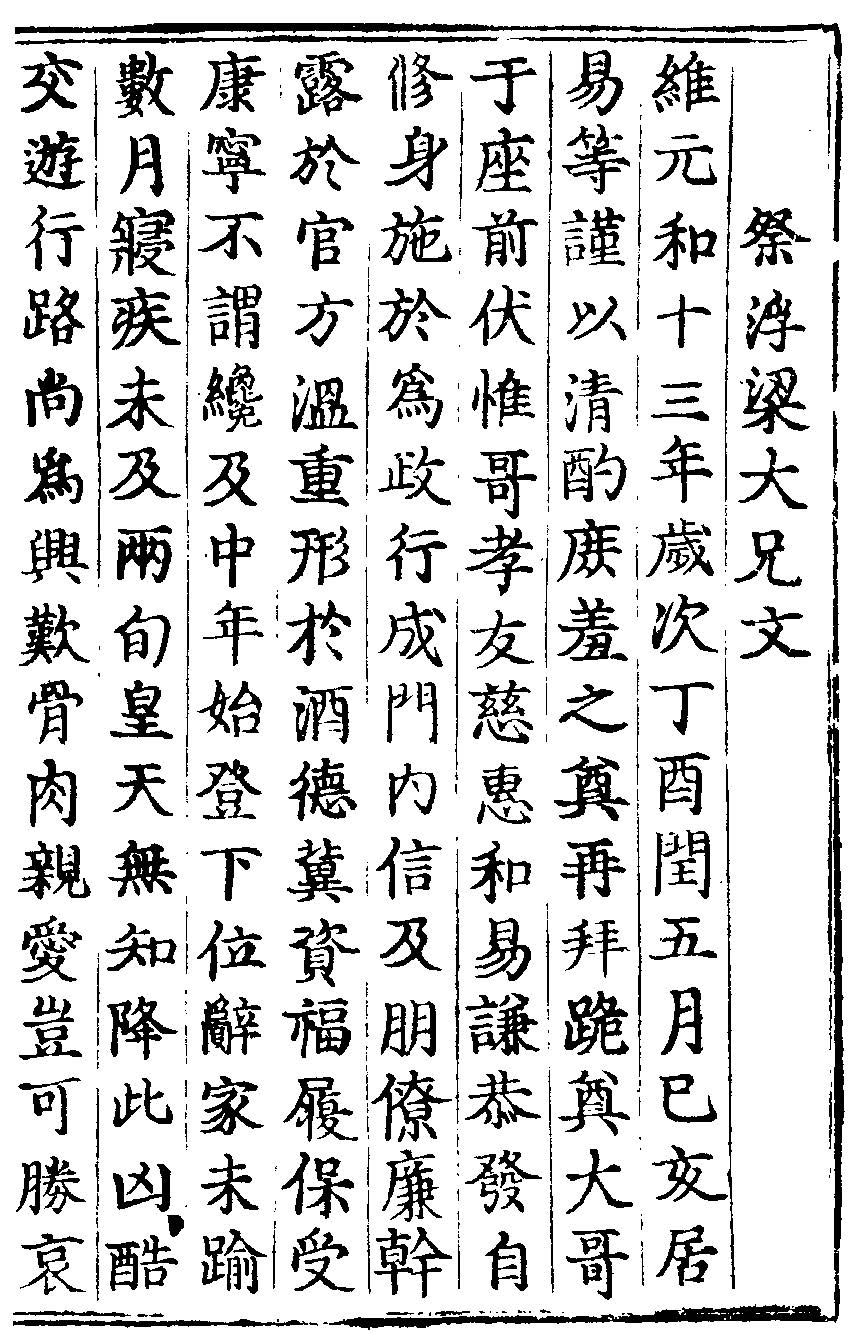 祭浮梁大兄文
維元和十三年歲次丁酉閏五月巳亥居
易等謹以清酌庶羞之奠再拜跪奠大哥
于座前伏惟哥孝友慈惠和易謙恭發自
修身施於爲政行成門內信及朋僚廉幹
露於官方溫重形於酒德冀資福履保受
康寧不謂纔及中年始登下位辭家未踰
數月寢疾未及兩旬皇天無知降此凶酷
交遊行路尚爲興歎骨肉親愛豈可勝哀